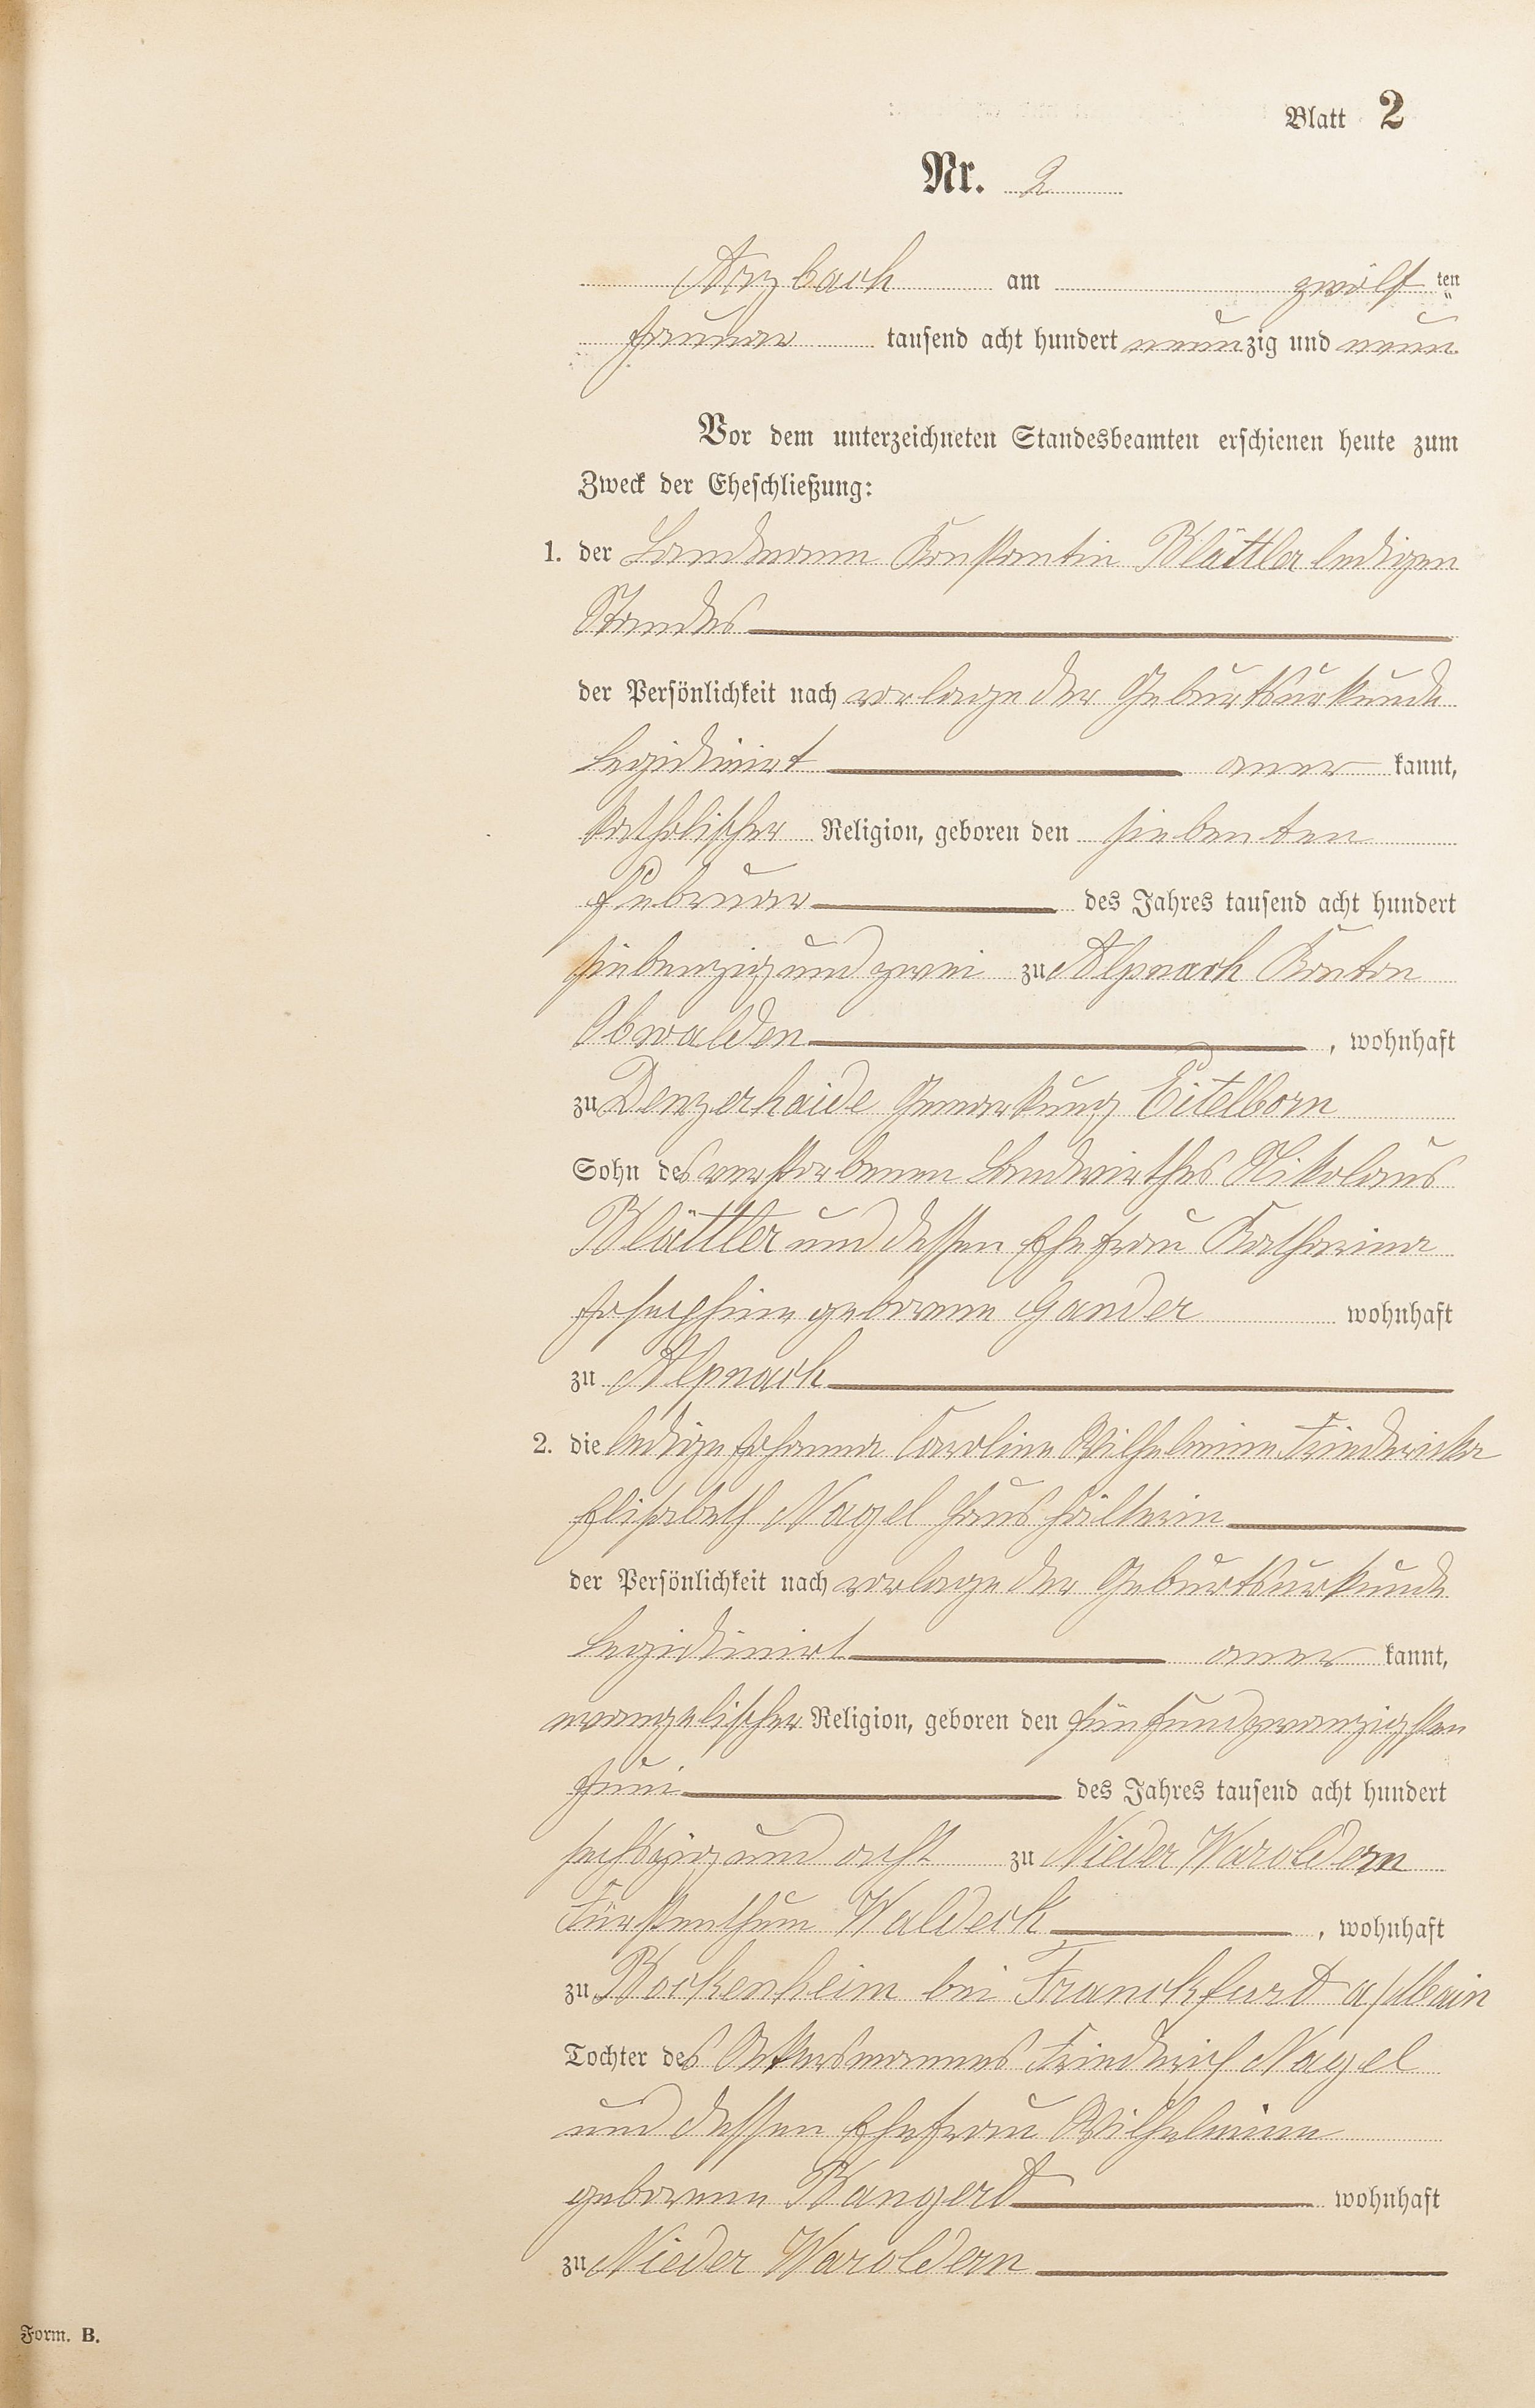 Blatt 2
Nr. 2
Arzbach am zwölf ten
Januar tausend acht hundert neunzig und neun
Vor dem unterzeichneten Standesbeamten erschienen heute zum
Zweck der Eheschließung:
1. der Landmann Konstantin Blättler ledigen
Standes
der Persönlichkeit nach vorlage der Geburtsurkunde
legidimirt aner kannt,
katholischer Religion, geboren den siebenten
Februar des Jahres tausend acht hundert
siebenzig und zwei zu Alpnach Kanton
Obwalden , wohnhaft
zu Denzerhaide Gemarkung Eitelborn
Sohn des verstorbenen Landwirthes Nikolaus
Blättler und dessen Ehefrau Katharina
Josephine geborene Gander wohnhaft
zu Alpnach
2. die ledige Johanna Caroline Wilhelmine Friedericka
Elisabeth Nagel Haushälterin
der Persönlichkeit nach vorlage der Geburtsurkunde
legidimirt aner kannt,
evangelischer Religion, geboren den fünfundzwanzigsten
Juni des Jahres tausend acht hundert
sechszig und acht zu Nieder Waroldern
Fürstenthum Waldeck , wohnhaft
zu Bockenheim bei Franckfurt a/Main
Tochter des Ackersmannes Friedrich Nagel
und dessen Ehefrau Wilhelmine
geborene Bangert wohnhaft
zu Nieder Waroldern
Form. B.